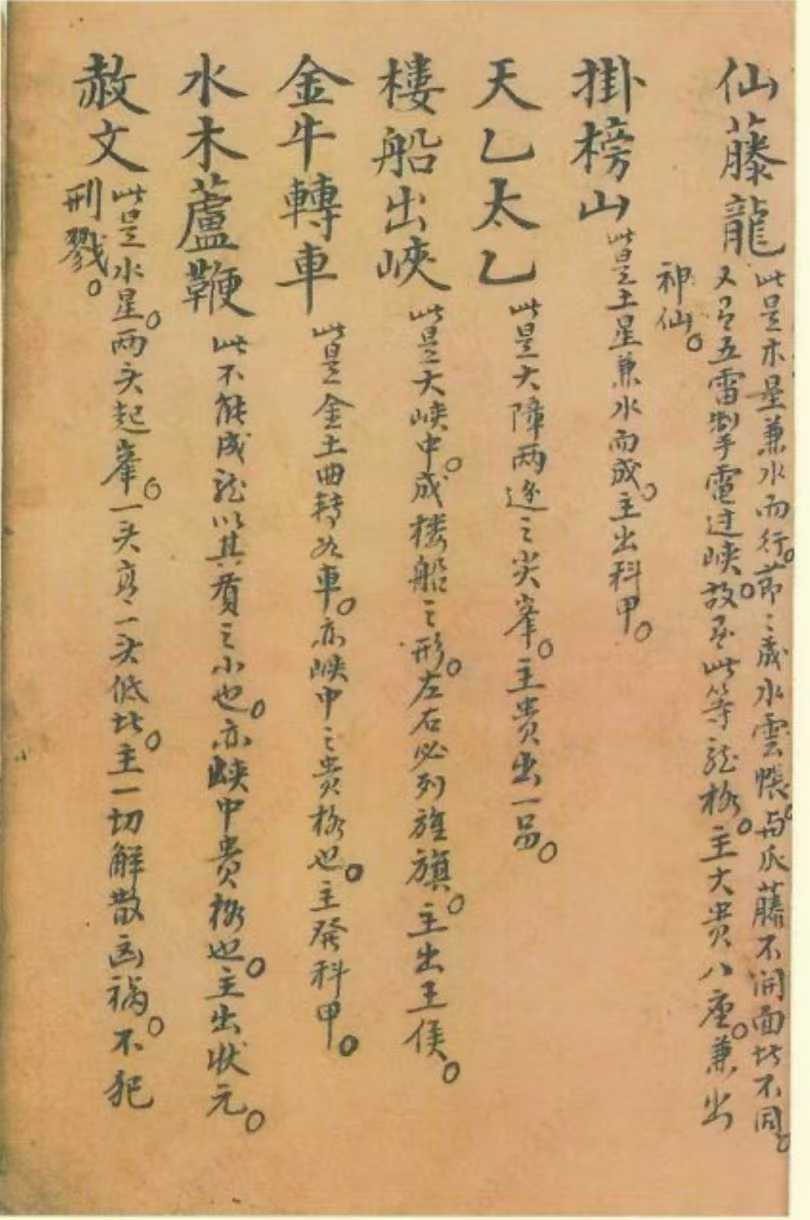 仙藤龍 此是木星兼水而行。節〻成水雲帳。与瓜藤不開面者不同。
又五雷掣電过峽。故此等龙格。主大贵八座。兼出
神仙。
掛榜山 此是土星兼水而成。主出科甲。
天乙太乙 此是大障两边之尖峯。主贵出一品。
樓船出峽 此是大峽中。成楼船之形。左右必列旌旗。主出王侯。
金牛轉車 此是金土曲转如車。亦峽中之贵格也。主發科甲。
水木蘆鞭 此不能成龙以其質之小也。亦峽中贵格也。主出状元。
赦文 此是水星。两头起峯。一头高一头低者。主一切解散凶禍。不犯
刑戮。